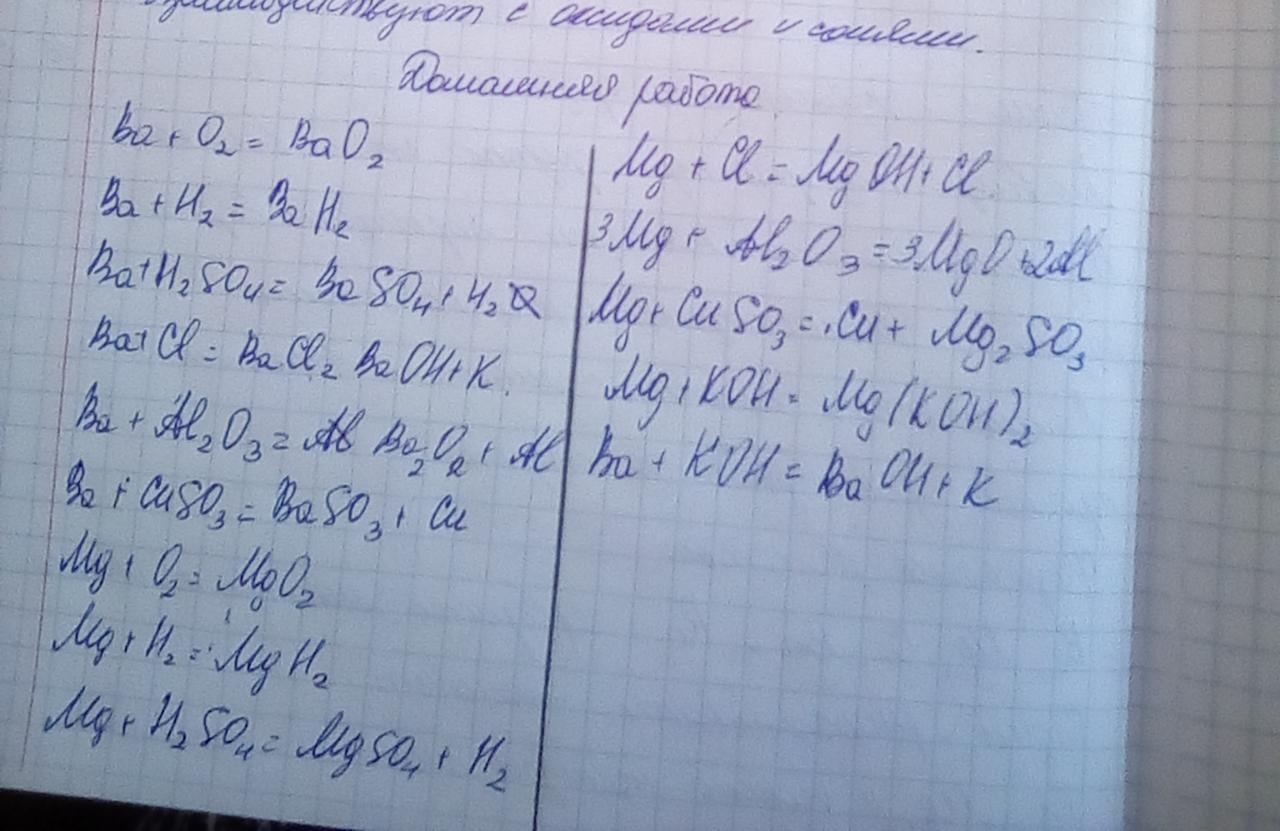 с оксидами и солями.
Домашняя работа
Ba + O₂ = BaO₂
Ba + H₂ = BaH₂
Ba + H₂SO₄ = BaSO₄ + H₂
Ba + Cl = BaCl₂ BaOH + K.
Ba + Al₂O₃ = Al Ba₂O₂ + Al
Ba + CuSO₃ = BaSO₃ + Cu
Mg + O₂ = MgO₂
Mg + H₂ = MgH₂
Mg + H₂SO₄ = MgSO₄ + H₂
Mg + Cl = MgOH + Cl
3Mg + Al₂O₃ = 3MgO + 2Al
Mg + CuSO₃ = Cu + Mg₂SO₃
Mg + KOH = Mg(KOH)₂
Ba + KOH = BaOH + K